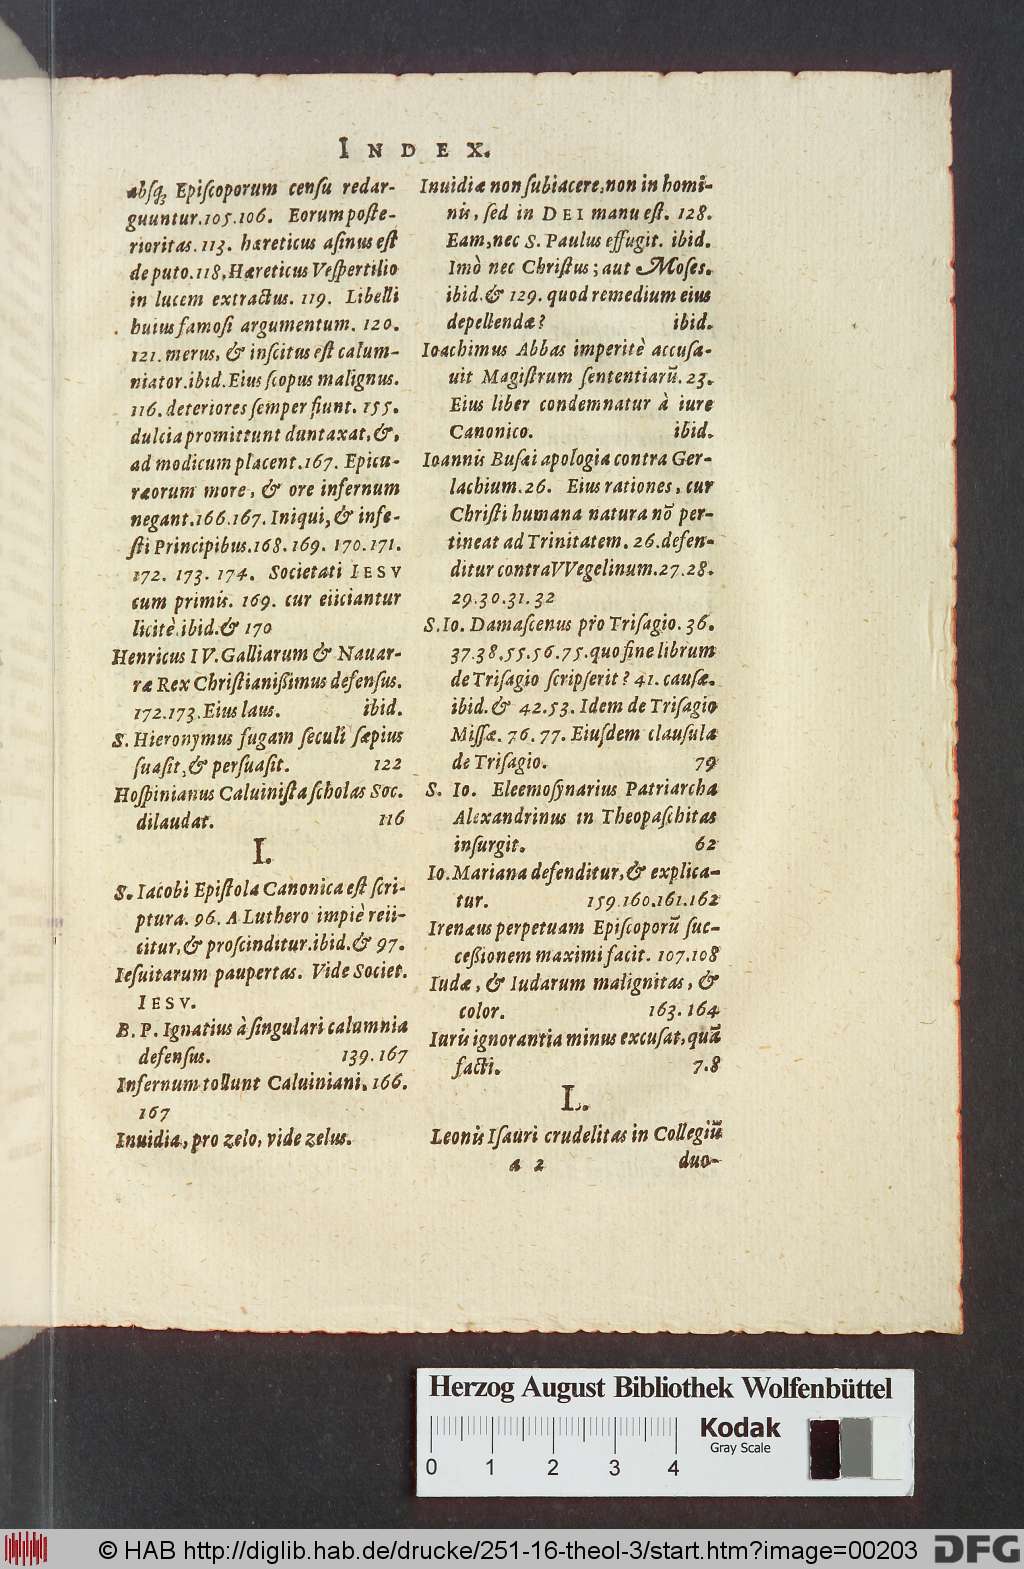 INDEX.
absq; Episcoporum censu redar-
guuntur.105.106. Eorum poste-
rioritas.113. hæreticus asinus est
de puto.118. Hæreticus Vespertilio
in lucem extractus. 119. Libelli
huius famosi argumentum. 120.
121. merus, & inscitus est calum-
niator.ibid. Eius scopus malignus.
116. deteriores semper fiunt. 155.
dulcia promittunt duntaxat, &,
ad modicum placent.167. Epicu-
ræorum more, & ore infernum
negant.166.167. Iniqui, & infe-
sti Principibus.168. 169. 170.171.
172. 173. 174. Societati IESV
cum primis. 169. cur eiiciantur
licitè.ibid.& 170
Henricus IV. Galliarum & Nauar-
ræ Rex Christianißimus defensus.
172.173. Eius laus. ibid.
S. Hieronymus fugam seculi sæpius
suasit, & persuasit. 122
Hospinianus Caluinista scholas Soc.
dilaudat. 116
I.
S. Iacobi Epistola Canonica est scri-
ptura. 96. A Luthero impiè reii-
citur, & proscinditur.ibid.& 97.
Iesuitarum paupertas. Vide Societ.
IESV.
B. P. Ignatius à singulari calumnia
defensus. 139.167
Infernum tollunt Caluiniani. 166.
167
Inuidia, pro zelo, vide zelus.
Inuidiæ non subiacere, non in homi-
nis, sed in DEI manu est. 128.
Eam, nec S. Paulus effugit. ibid.
Imò nec Christus; aut Moses.
ibid.& 129. quod remedium eius
depellendæ? ibid.
Ioachimus Abbas imperitè accusa-
uit Magistrum sententiarũ. 23.
Eius liber condemnatur à iure
Canonico. ibid.
Ioannis Busæi apologia contra Ger-
lachium.26. Eius rationes, cur
Christi humana natura nõ per-
tineat ad Trinitatem. 26. defen-
ditur contra VVegelinum.27.28.
29.30.31.32
S. Io. Damascenus pro Trisagio. 36.
37.38.55.56.75. quo fine librum
de Trisagio scripserit? 41. causæ.
ibid.& 42.53. Idem de Trisagio
Missæ. 76. 77. Eiusdem clausula
de Trisagio. 79
S. Io. Eleemosynarius Patriarcha
Alexandrinus in Theopaschitas
insurgit. 62
Io. Mariana defenditur, & explica-
tur. 159.160.161.162
Irenæus perpetuam Episcoporũ suc-
ceßionem maximi facit. 107.108
Iudæ, & Iudarum malignitas, &
color. 163. 164
Iuris ignorantia minus excusat, quã
facti. 7.8
L.
Leonis Isauri crudelitas in Collegiũ
a 2 duo-
Herzog August Bibliothek Wolfenbüttel
Kodak
Gray Scale
0 1 2 3 4
© HAB http://diglib.hab.de/drucke/251-16-theol-3/start.htm?image=00203
DFG